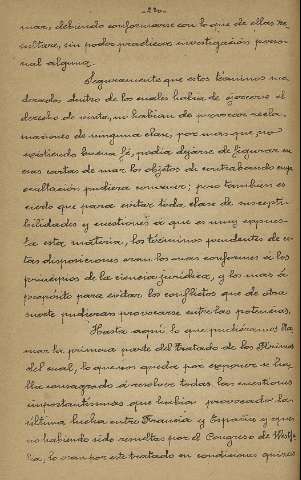 -230-
mar, debiendo conformarse con lo que de ellas re-
sultare, sin poder practicar investigación perso-
nal alguna.
Seguramente que estos términos mo-
derados dentro de los cuales había de ejercerse el
derecho de visita, no habían de provocar recla-
maciones de ninguna clase, por mas que, no
existiendo buena fé, podía dejarse de figurar en
esas cartas de mar los objetos de contrabando cuya
ocultación pudiera convenir; pero tambien es
cierto que para evitar toda clase de suscepti-
bilidades y cuestiones á que es muy expues-
ta esta materia, los términos prudentes de es-
tas disposiciones eran los mas conformes á los
principios de la ciencia jurídica, y los mas á
propósito para evitar los conflictos que de otra
suerte pudieran provocarse entre las potencias.
Hasta aquí lo que pudiéramos lla-
mar la primera parte del Tratado de los Pirineos
del cual, lo que nos queda por exponer se ha-
lla consagrado á resolver todas las cuestiones
importantísimas que había provocado la
última lucha entre Francia y España, y que
no habiendo sido resueltas por el Congreso de Westfa-
lia, lo eran por este tratado en condiciones quizás